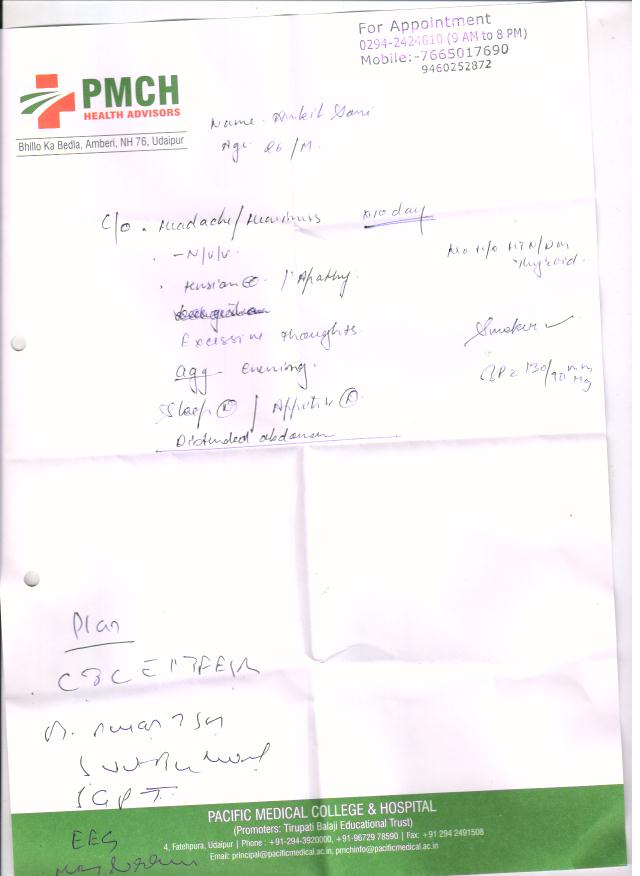 For Appointment
0294-2424810 (9 AM to 8 PM)
Mobile:-7665017690
9460252872
PMCH
HEALTH ADVISORS
Bhillo Ka Bedla, Amberi, NH 76, Udaipur
Name. Ankit
Age 26/M.
C/o. Headache/Heaviness
- N/V/V
No H/o HTN/DM
Thyroid.
Tension / Apathy.
Excessive thoughts
Smoker ✓
agg evening.
BP = 130/90 mm Hg
Sleep N / Appetite N
Distended abdomen
Plan
CBC
SGPT
EEG
PACIFIC MEDICAL COLLEGE & HOSPITAL
(Promoters: Tirupati Balaji Educational Trust)
4, Fatehpura, Udaipur | Phone : +91-294-3920000, +91-96729 78590 | Fax: +91 294 2491508
Email: principal@pacificmedical.ac.in, pmchinfo@pacificmedical.ac.in